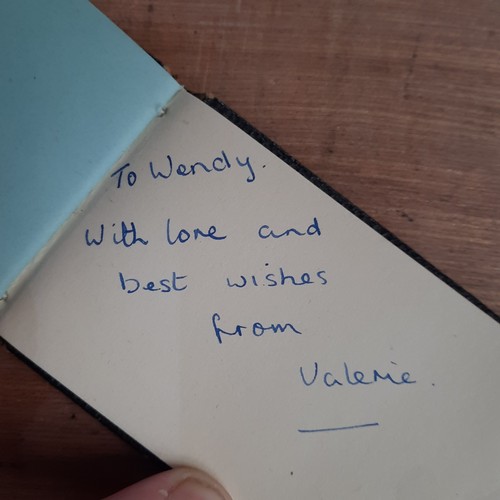 To Wendy.
With love and
best wishes
from
Valerie.